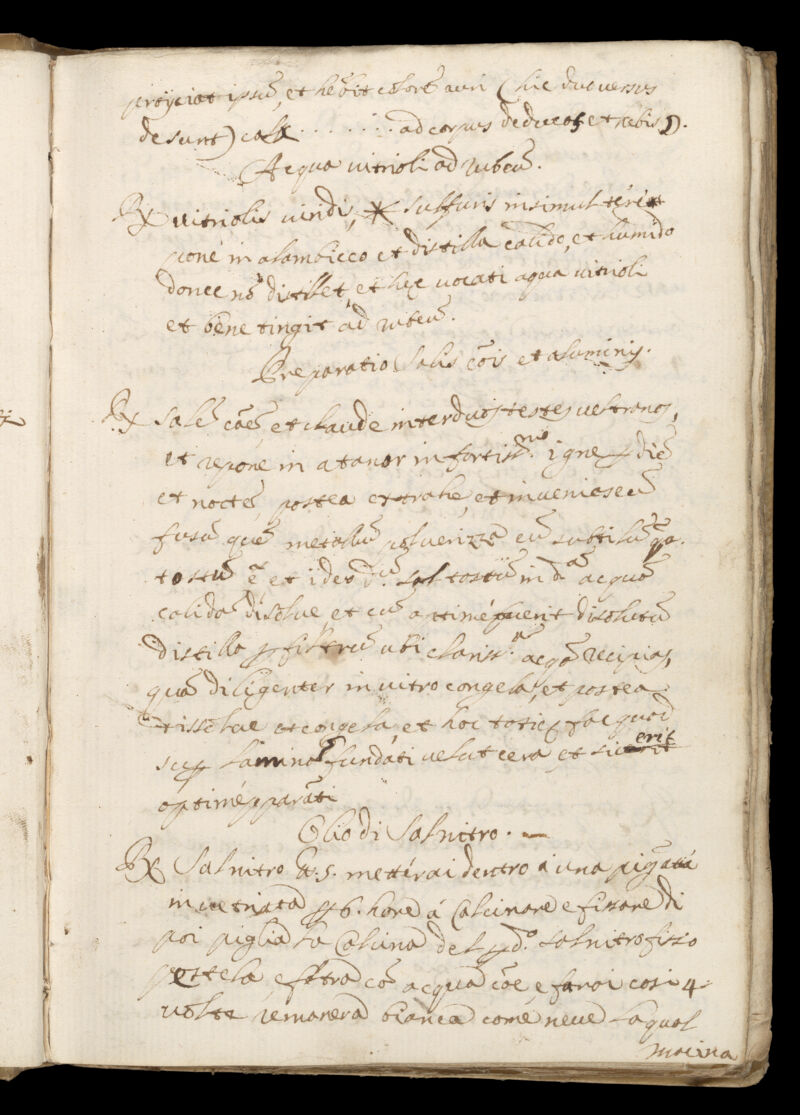 proijciat ipsũ, et hẽbit colorẽ auri (hic duo versus
desunt) calx . . . . . . . ad corpus et rebis
Acqua vitrioli ad rubeũ.
℞ vitriolis viridis, * sulfuris insimul
pone in alambicco et distilla calido, et humido
donec nõ distillet, et hęc vocati aqua vitrioli
et bene tingit ad rubeũ.
Preparatio Salis cõis et aluminis.
℞ Salẽ cõẽ et claude inter duos testes vestranos,
et repone in atanor in fortissmo igne p diẽ
et noctẽ, postea extrahe, et invenies eũ
fusũ quẽ metallũ eũ subtilũ
tostũ ẽ et ideo dũ sal tostũ in dam acquã
calidã disolue, et cũ optime fuerit disolutũ
distilla p filtrũ ubi clarissam acqã recipias,
quã diligenter in vitro congela, et postea
dissolue et congela, et hoc toties fac quod
sup laminã fundati velut cera et sic erit
optimè pparati
Olio di Salnitro. —
℞ Salnitro ℔.5. metterai dentro à una pignatta
invetriata p 6. hore à Calcinare e fissare di
poi piglia la Calcina del pdo. salnitro fisso
pestela e fltra cõ acqua cõe e farai cosi 4
volte remanera bianca come neve laqual
macina